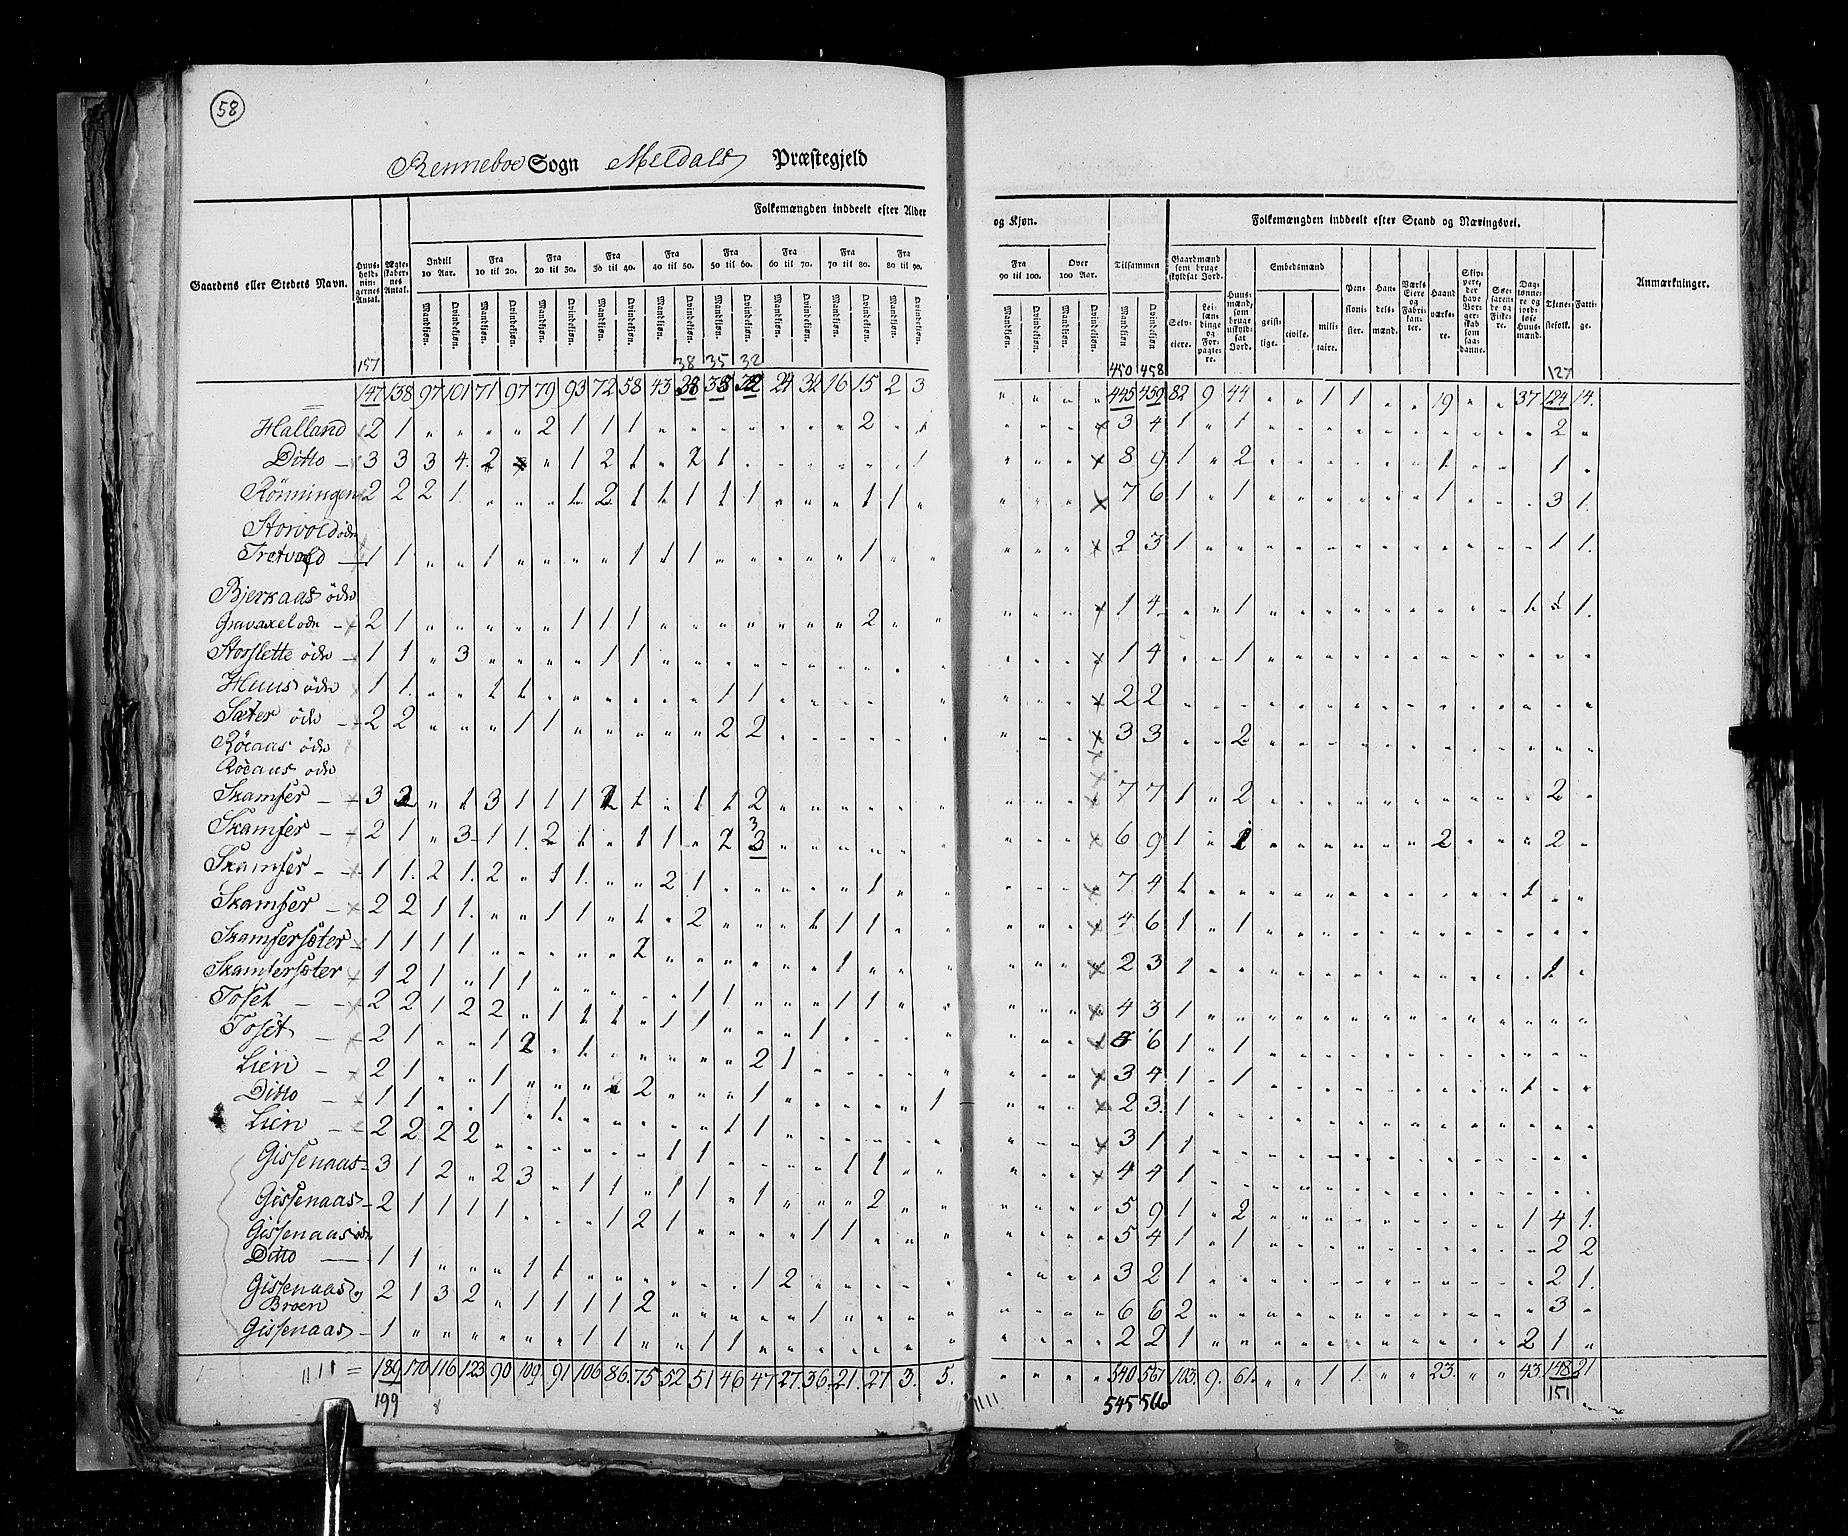 58
Renneboe Sogn Meldals Præstegjeld
Folkemængden inddeelt efter Alder
og Kjøn.
Folkemængden inddeelt efter Stand og Næringsvei.
Gaardens eller Stedets Navn.
Huusholdningernes Antal.
Ægteskabernes Antal.
Indtil 10 Aar.
Fra 10 til 20.
Fra 20 til 30.
Fra 30 til 40.
Fra 40 til 50.
Fra 50 til 60.
Fra 60 til 70.
Fra 70 til 80.
Fra 80 til 90.
Fra 90 til 100.
Over 100 Aar.
Tilsammen
Mandkjøn. Qvindekjøn.
Gaardmænd som bruge skyldsat Jord.
Selveiere.
Leilændinge og Forpagtere.
Huusmænd, som bruge uskyldsat Jord.
Embedsmænd
geistlige.
civile.
militaire.
Pensionister.
Handelsmænd.
Værks Eiere og Fabrikanter.
Haandværkere.
Skippere, der have Borgerskab som saadanne.
Søefarende og Fiskere.
Daglønnere og jordløse Huusmænd.
Tjenestefolk.
Fattige.
Anmærkninger.
157 38 35 32 450 458 127
147 138 97 101 71 97 79 93 72 58 43 38 38 32 24 32 16 15 2 3 445 459 82 9 44 1 1 19 37 124 14.
Halland 2 1 2 1 1 1 2 3 4 1 1 2
Ditto 3 3 3 4 2 1 2 1 2 1 1 8 9 1 2 1 1
Rönningen 2 2 2 1 1 2 1 1 1 1 1 1 1 7 6 1 1 1 3 1.
Storvold öde
Tretvold 1 1 1 1 1 1 1 2 3 1 1 1.
Bjerkaas öde
Gravaxel öde 2 1 1 1 1 2 1 4 1 1 1 1.
Storslette öde 1 1 3 1 1 1 4 1
Huus öde 1 1 1 1 1 1 2 2
Sæter öde 2 2 1 1 2 2 3 3 2
Röeaas öde
Röeaas öde
Skamfer 3 2 1 3 1 1 1 2 1 1 1 2 7 7 1 2 2
Skamfer 2 1 3 1 1 2 1 1 1 2 3 6 9 1 1 2 2
Skamfer 1 1 2 1 2 1 1 2 1 1 7 4 1 1
Skamfer 2 2 1 1 1 1 1 2 1 1 1 4 6 1 1
Skamfersæter 1 1 1 1 2 1 2 3 1 1
Skamfersæter 1 2 1 1 1 1 1 1 1 4 3 1
Toset 2 2 1 2 2 1 1 1 1 1 1 6 1 1
Toset 2 1 1 2 1 2 1 3 4 1 1 1
Lien 2 1 1 2 1 1 2 3 1
Ditto 1 1 1 1 1 1 3 1 1
Lien 2 2 2 2 1 1 1 1 4 4 1
Gissenaas 3 1 2 2 3 1 1 1 1 1 2 5 9 1 2 1 4 1.
Gissenaas 2 1 1 1 1 1 2 1 1 1 5 4 1 1 2 2
Gissenaas öde
Ditto 1 1 1 1 1 2 3 2 1 2 1.
Gissenaas og
Broen 2 1 3 2 1 1 1 1 2 1 6 6 2 3
Gissenaas 1 1 1 1 1 2 2 1 2 1
189 170 116 123 90 109. 91 106 86. 75 52 51 46 47 27. 36. 21. 27 3. 5. 540 567 103. 9. 61. 1 1. 23. 43. 148 21
199 545 566 151